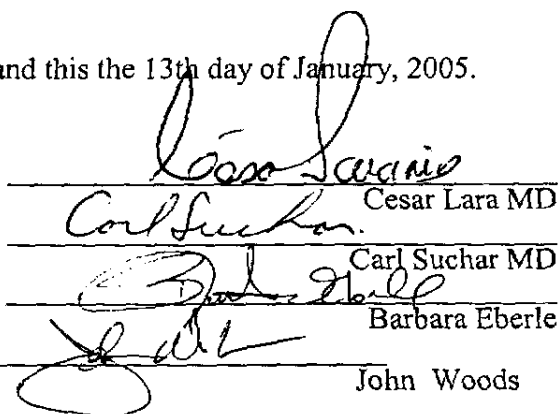 and this the 13th day of January, 2005.
Cesar Lara MD
Carl Suchar
Carl Suchar MD
Barbara Eberle
John Woods